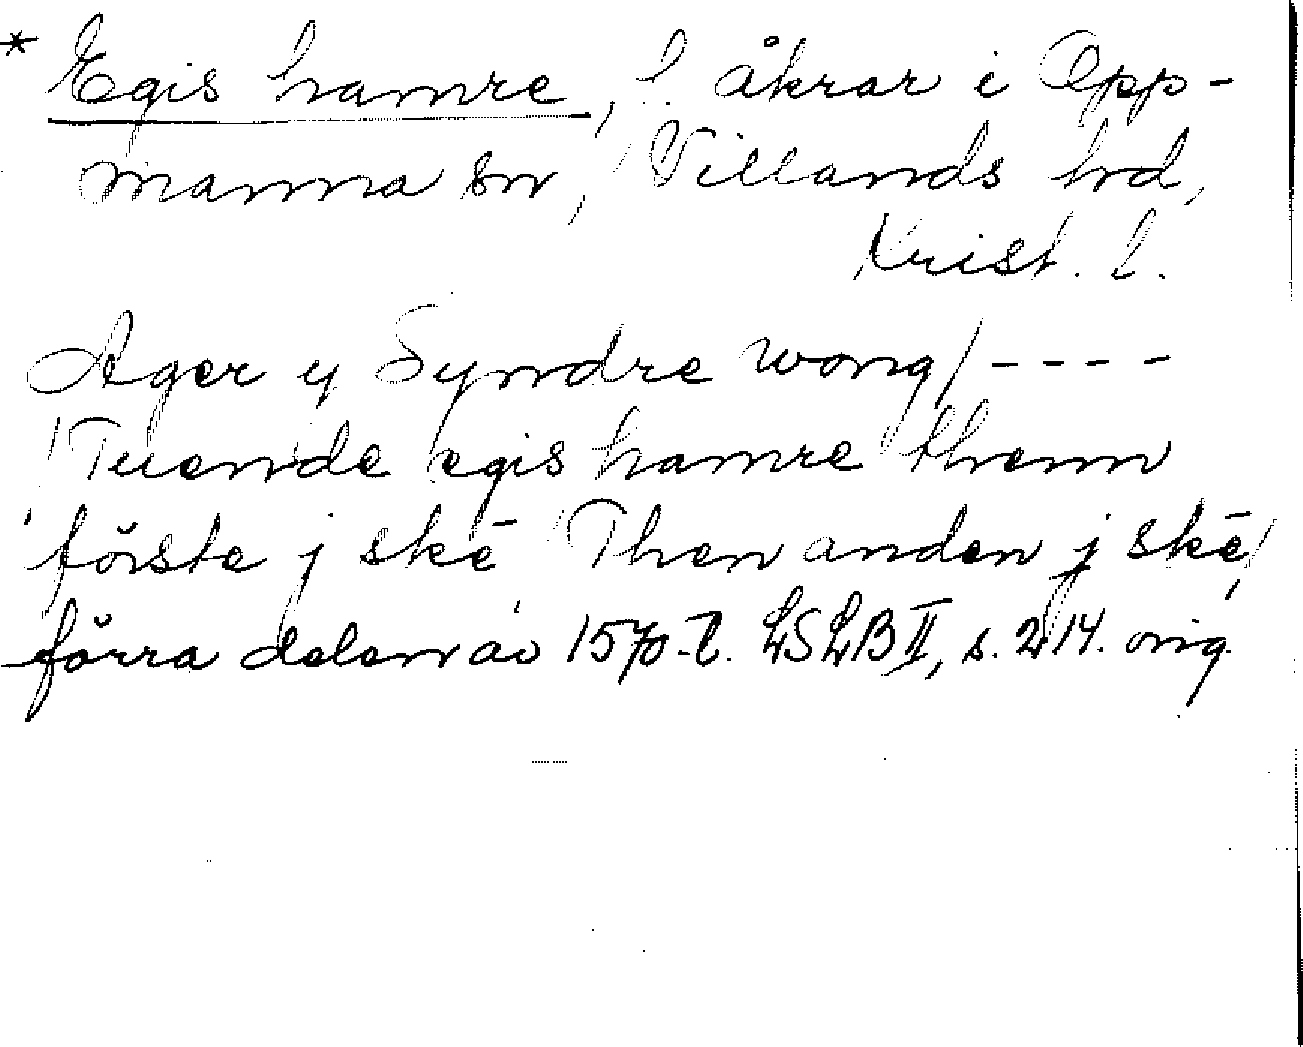 * Egis hamre, l. åkrar i Opp-
manna sn, Villands hrd,
Krist. l.
Ager y Syndre wong/ - - - -
Tuende egis hamre thenn
förste j skē Then anden j skē/
förra delen av 1570-t. LSLB II, s. 214. orig.